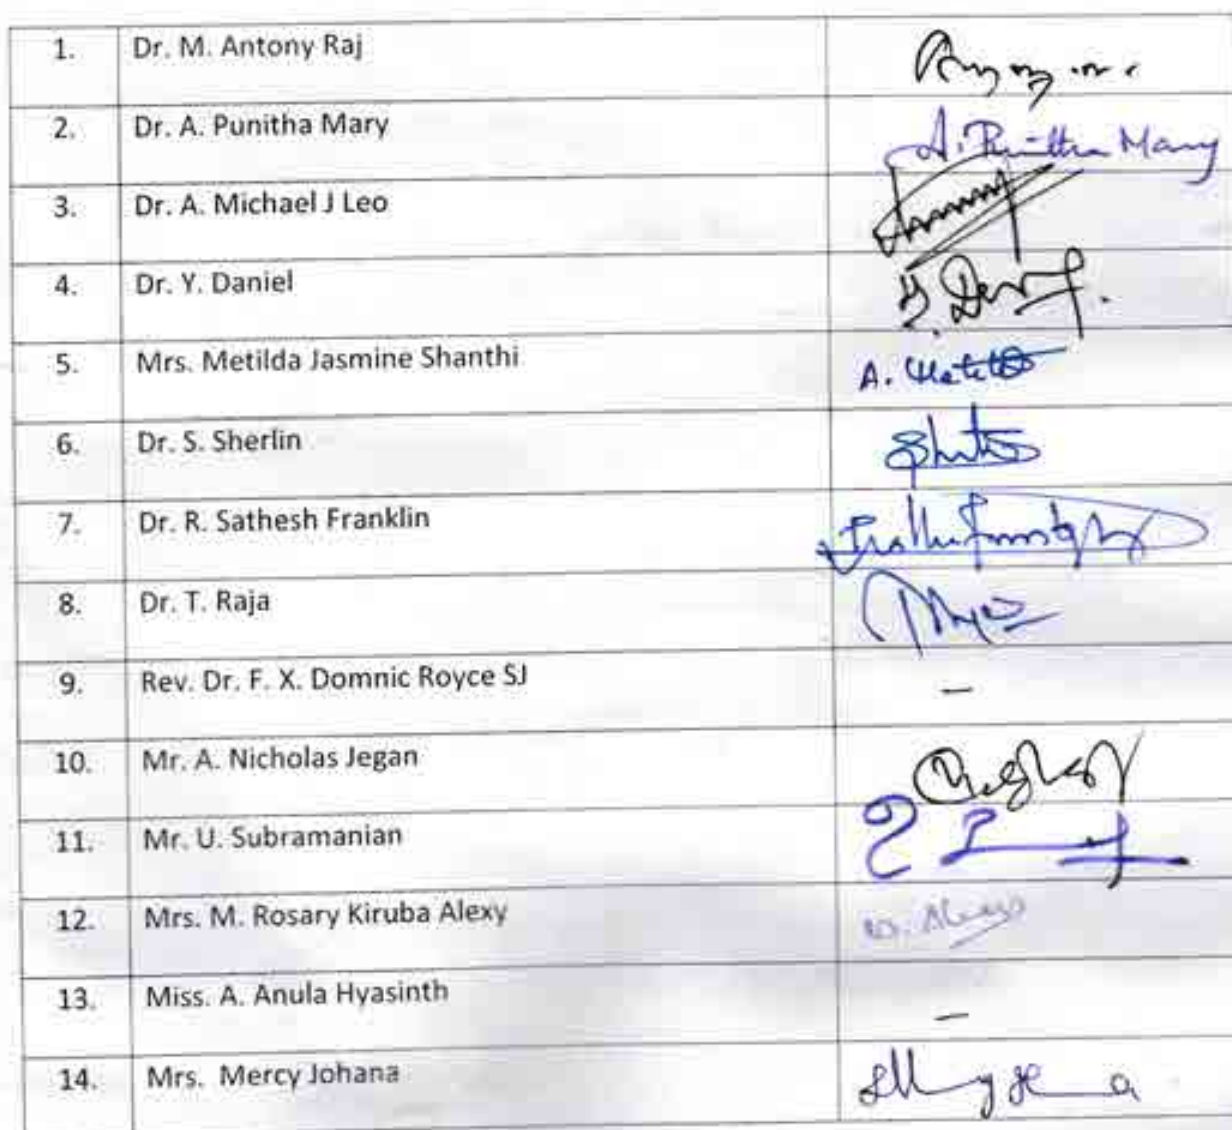 1. Dr. M. Antony Raj
2. Dr. A. Punitha Mary A. Punitha Mary
3. Dr. A. Michael J Leo
4. Dr. Y. Daniel
5. Mrs. Metilda Jasmine Shanthi A.
6. Dr. S. Sherlin
7. Dr. R. Sathesh Franklin
8. Dr. T. Raja
9. Rev. Dr. F. X. Domnic Royce SJ –
10. Mr. A. Nicholas Jegan
11. Mr. U. Subramanian
12. Mrs. M. Rosary Kiruba Alexy
13. Miss. A. Anula Hyasinth –
14. Mrs. Mercy Johana